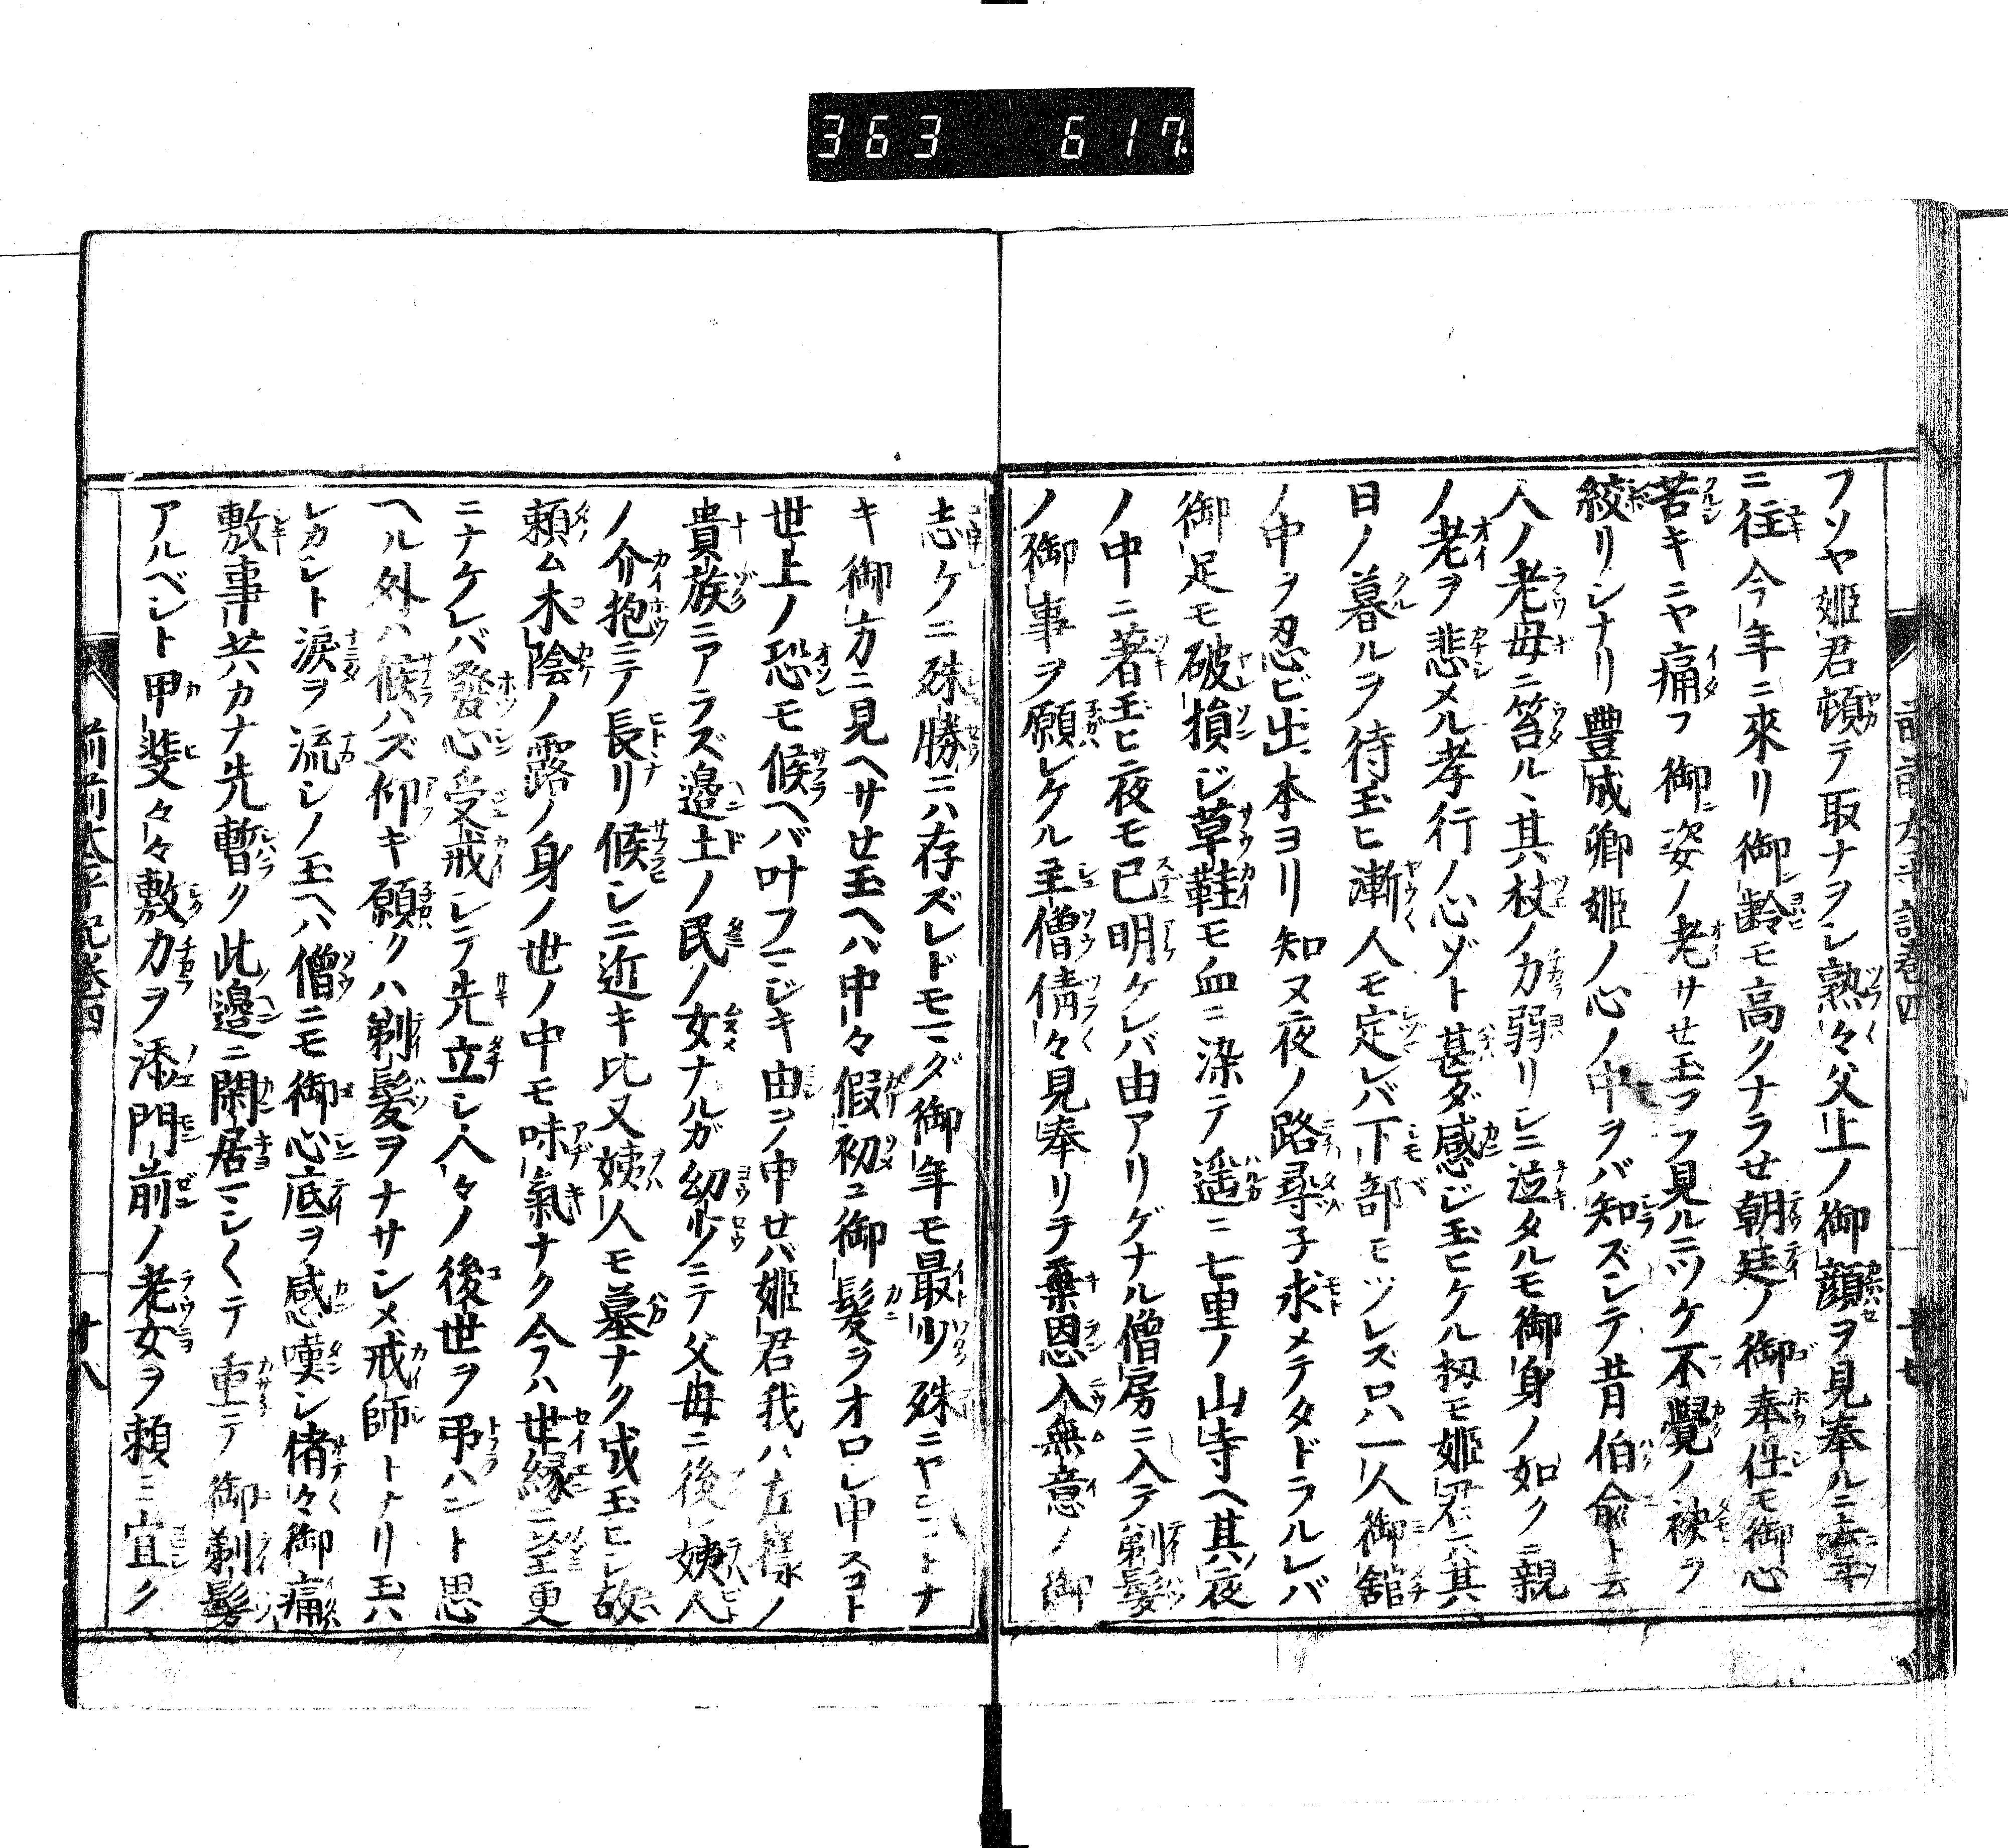 363 617
前前太平記卷四
フソヤ姫君頓テ取ナヲシ熟々父上ノ御顔ヲ見奉ルニ去年
ニ往今年ニ來リ御齡モ高クナラせ朝廷ノ御奉仕モ御心
苦キニヤ痛フ御姿ノ老サせ玉フフ見ルニツケ不覺ノ袂ヲ
絞リシナリ豊成卿姫ノ心ノ中ヲバ知ズシテ昔伯俞ト云
人ノ老母ニ笞ルヽ其杖ノ力弱リシニ泣タルモ御身ノ如クニ親
ノ老ヲ悲メル孝行ノ心ゾト甚ダ感ジ玉ヒケル扨モ姫君ハ其
日ノ暮ルヲ待玉ヒ漸人モ定レバ下部モツレズ只一人御舘
ノ中ヲ忍ビ出本ヨリ知ヌ夜ノ路尋子求メテタドラルレバ
御足モ破損ジ草鞋モ血ニ染テ遥ニ七里ノ山寺ヘ其夜
ノ中ニ著玉ヒ夜モ已明ケレバ由アリゲナル僧房ニ入テ剃髮
ノ御事ヲ願レケル主僧倩々見奉リテ棄恩入無意ノ御
志ケニ殊勝ニハ存ズレドモマダ御年モ最少殊ニヤンコトナ
キ御方ニ見ヘサせ玉ヘバ中々假初ニ御髮ヲオロシ申スコト
世上ノ恐モ候ヘバ叶フマジキ由ヲノ申せバ姫君我ハ左様ノ
貴族ニアラズ邉土ノ民ノ女ナルガ幼少ニテ父母ニ後レ姨人
ノ介抱ニテ長リ候シニ近キ比又姨人モ墓ナク成玉ヒシ故
頼ム木陰ノ露ノ身ノ世ノ中モ味氣ナク今ハ世縁ニ望更
ニナケレバ發心受戒シテ先立シ人々ノ後世ヲ弔ハント思
ヘル外ハ候ハズ仰キ願クハ剃髮ヲナサシメ戒師トナリ玉ハ
レカシト淚ヲ流シノ玉ヘバ僧ニモ御心底ヲ感嘆シ偖々御痛
敷事共カナ先暫ク此邊ニ閑居マシ〱テ重テ御剃髮
アルベシト甲斐々々敷力ヲ添門前ノ老女ヲ頼ミ宜ク
前前太平記卷四
十八